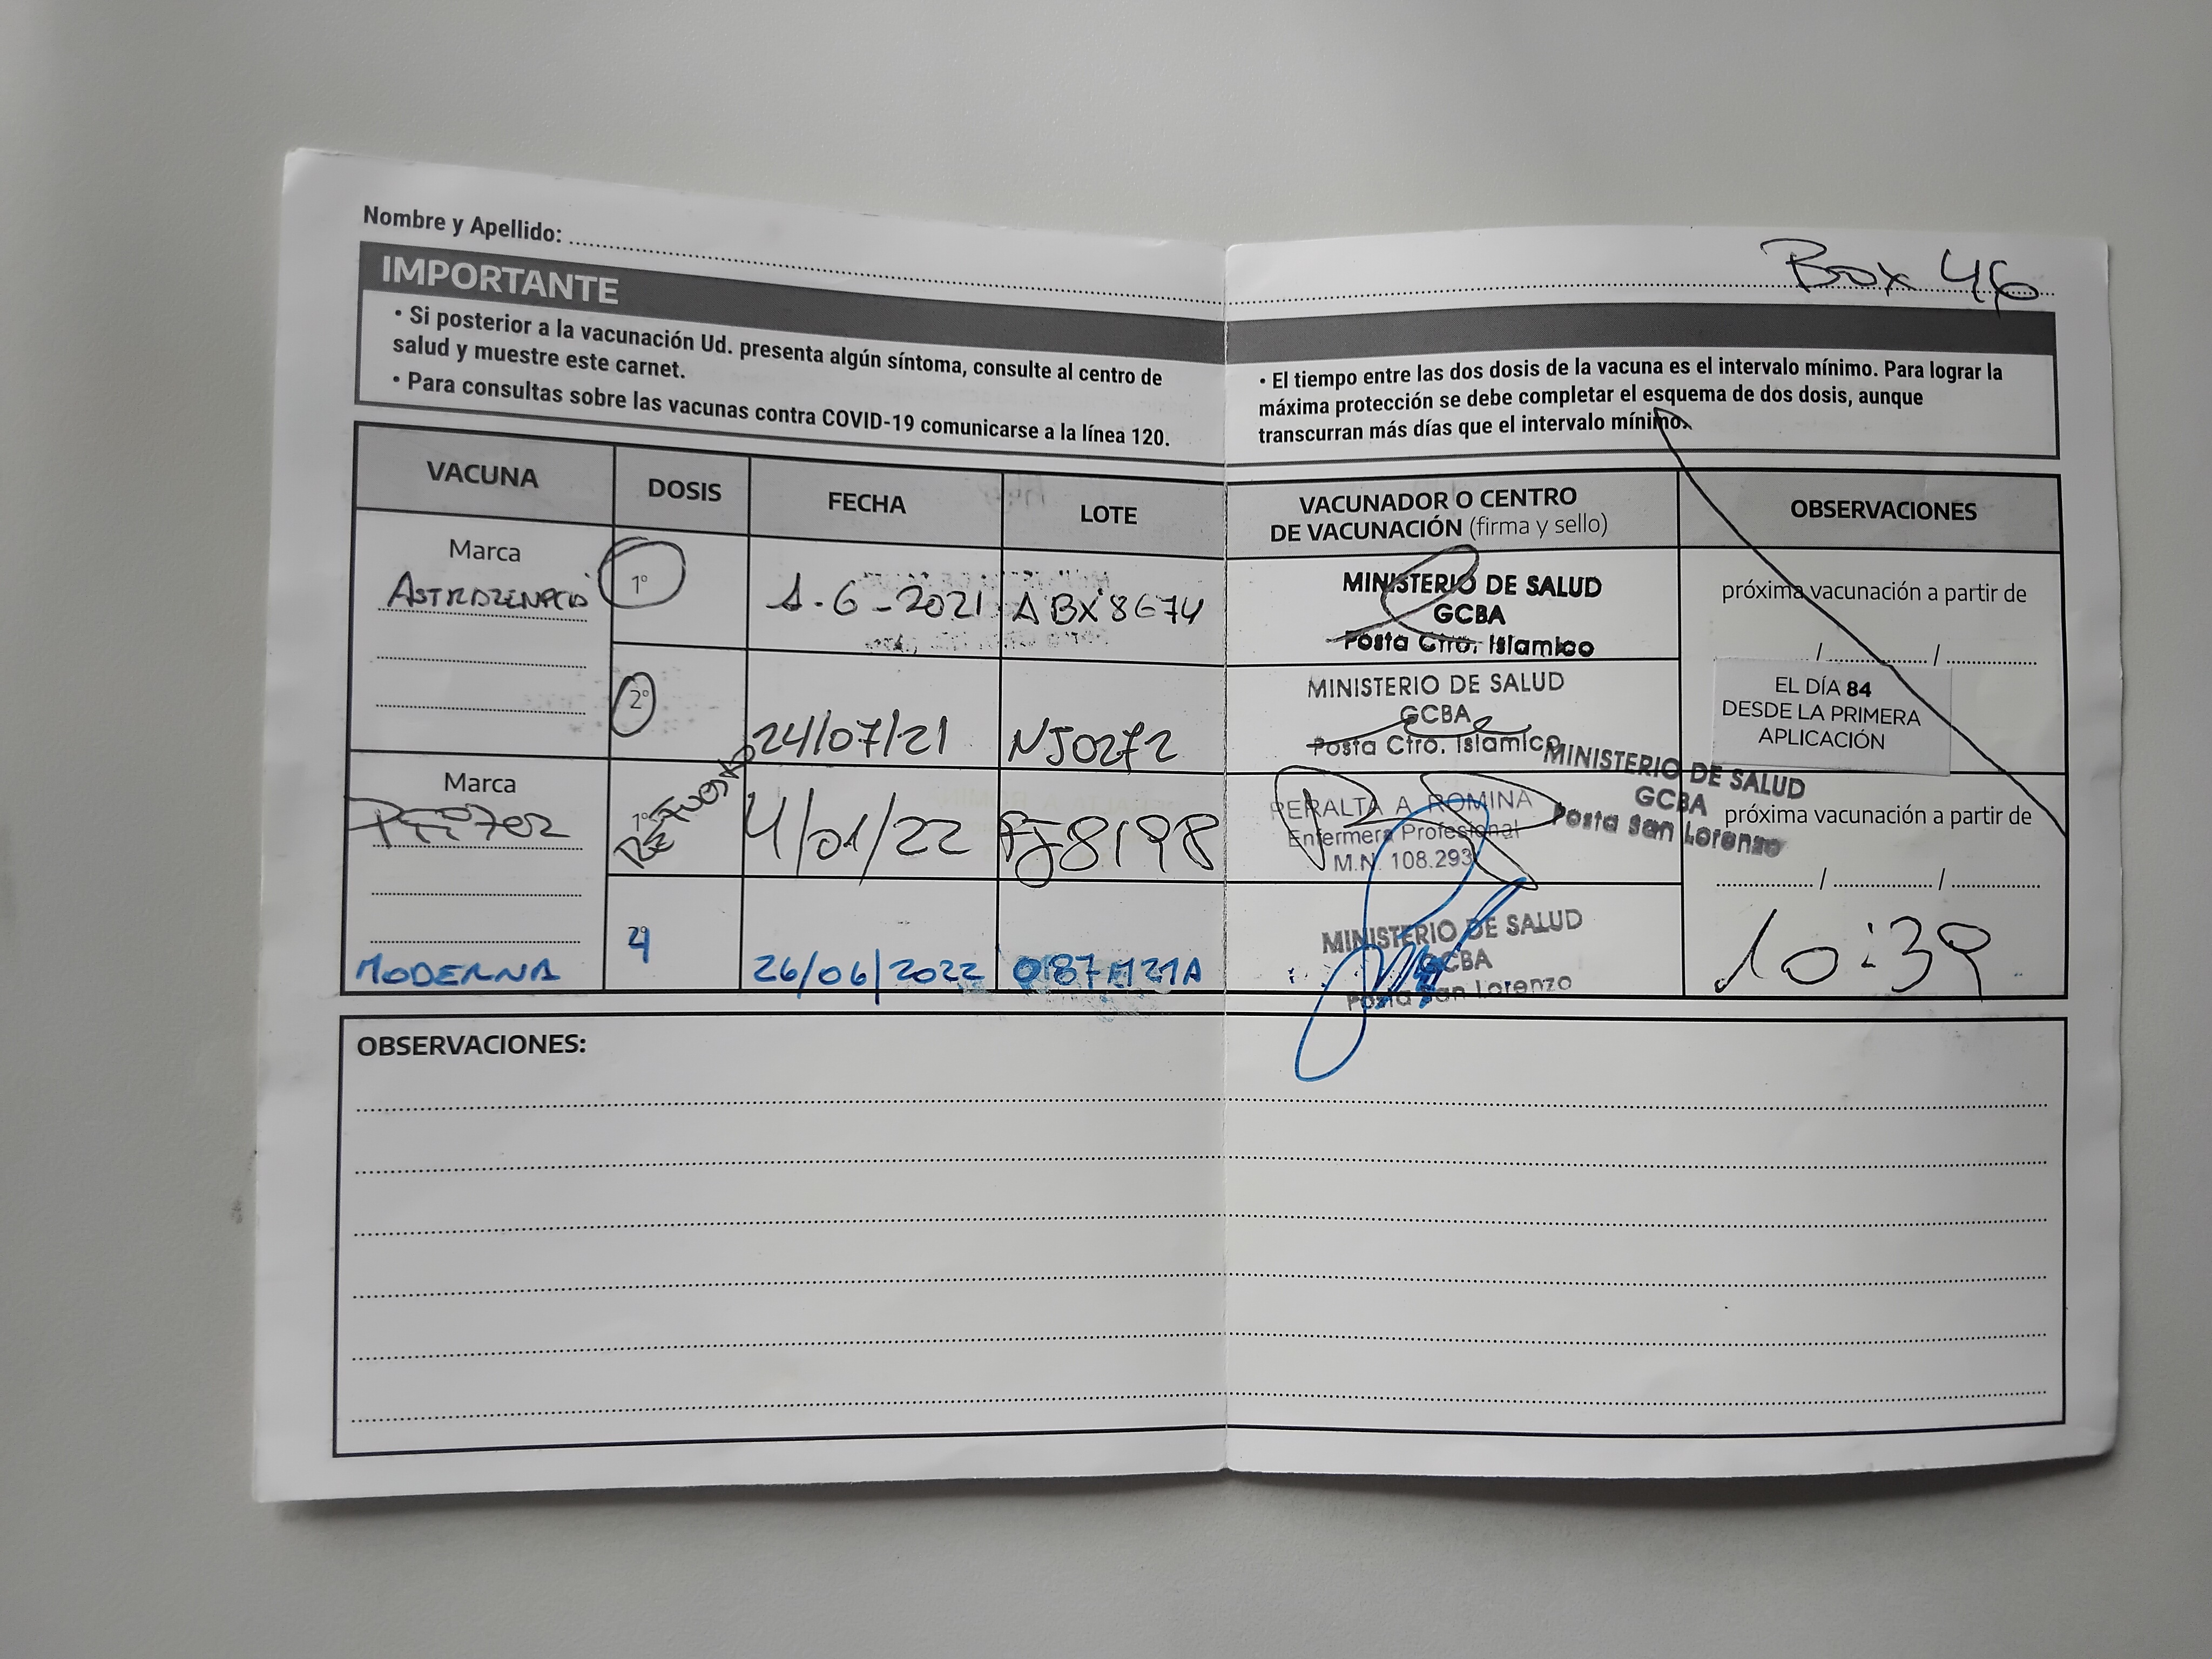 Nombre y Apellido:
Box 46
IMPORTANTE
• Si posterior a la vacunación Ud. presenta algún síntoma, consulte al centro de
salud y muestre este carnet.
• Para consultas sobre las vacunas contra COVID-19 comunicarse a la línea 120.
• El tiempo entre las dos dosis de la vacuna es el intervalo mínimo. Para lograr la
máxima protección se debe completar el esquema de dos dosis, aunque
transcurran más días que el intervalo mínimo.
VACUNA DOSIS FECHA LOTE VACUNADOR O CENTRO
DE VACUNACIÓN (firma y sello) OBSERVACIONES
Marca
1° 1-6-2021 ABX8674
MINISTERIO DE SALUD
GCBA
Posta Ctro. Islamico
próxima vacunación a partir de
/ /
2° 24/07/21 NJ0272
MINISTERIO DE SALUD
GCBA
Posta Ctro. Islamico
EL DÍA 84
DESDE LA PRIMERA
APLICACIÓN
Marca
1° 4/01/22 FJ8198
PERALTA A. ROMINA
Enfermera Profesional
M.N. 108.293
MINISTERIO DE SALUD
GCBA
Posta San Lorenzo
próxima vacunación a partir de
/ /
MODERNA 4 26/06/2022
MINISTERIO DE SALUD
GCBA
Posta San Lorenzo
10:39
OBSERVACIONES: